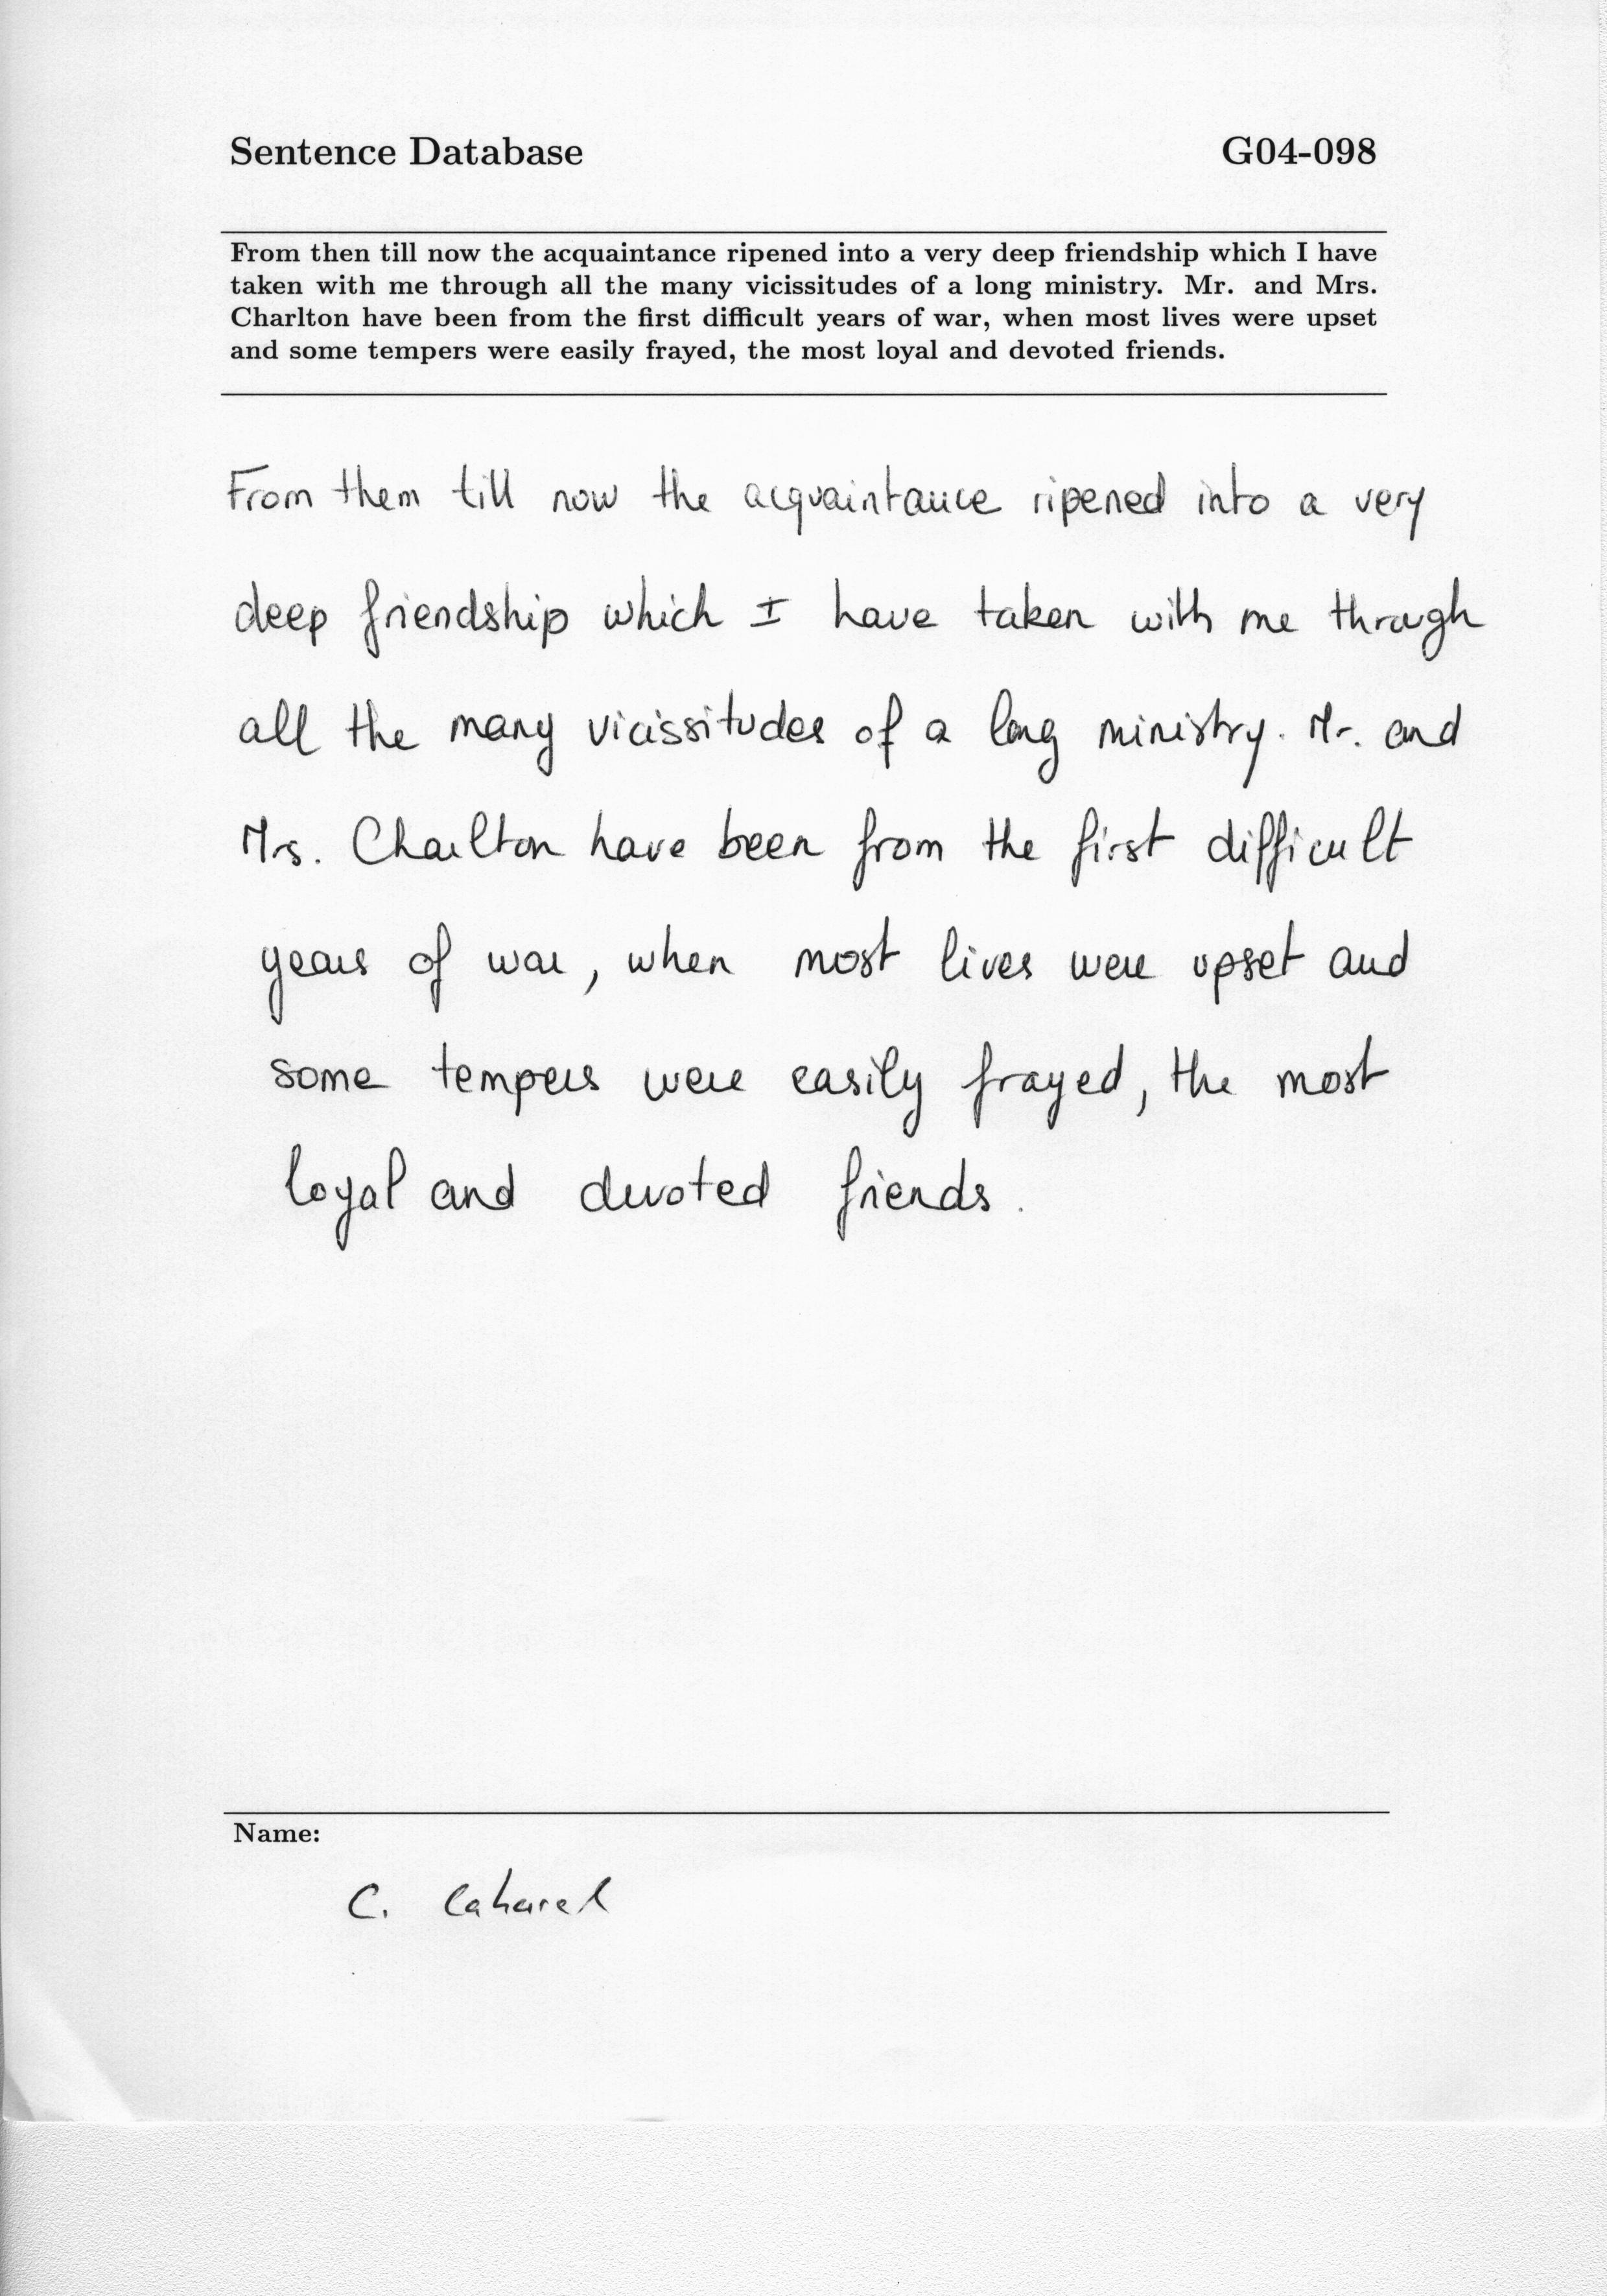 Sentence Database G04-098
From then till now the acquaintance ripened into a very deep friendship which I have
taken with me through all the many vicissitudes of a long ministry. Mr. and Mrs.
Charlton have been from the first difficult years of war, when most lives were upset
and some tempers were easily frayed, the most loyal and devoted friends.
From them till now the acquaintance ripened into a very
deep friendship which I have taken with me through
all the many vicissitudes of a long ministry. Mr. and
Mrs. Charlton have been from the first difficult
years of war, when most lives were upset and
some tempers were easily frayed, the most
loyal and devoted friends.
Name:
C.